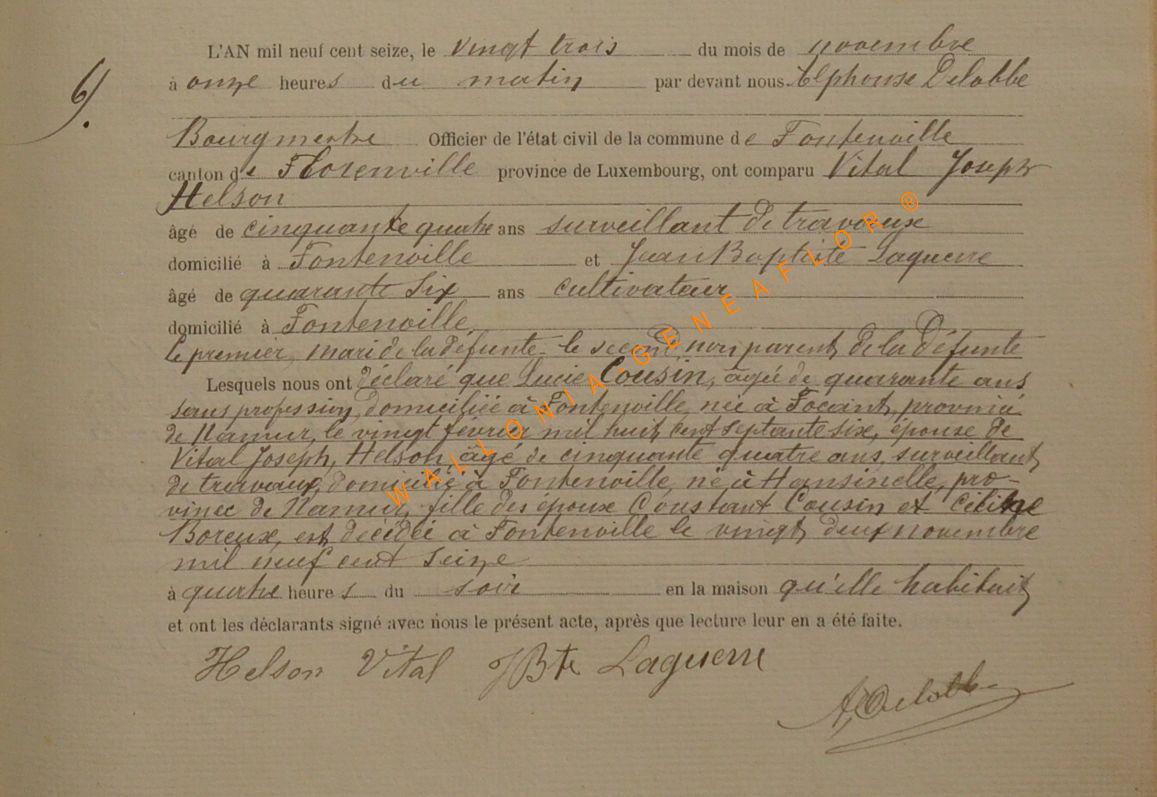 L'AN mil neuf cent seize, le vingt trois du mois de novembre
6).
à onze heures du matin par devant nous Alphonse Delobbe
Bourgmestre Officier de l'état civil de la commune de Fontenoille
canton de Florenville province de Luxembourg, ont comparu Vital Joseph
Helson
âgé de cinquante quatre ans surveillant de travaux
domicilié à Fontenoille et Jean Baptiste Laguerre
âgé de quarante six ans cultivateur
domicilié à Fontenoille
Le premier, mari de la défunte le second non parent de la Défunte
Lesquels nous ont déclaré que Lucie Cousin, âgée de quarante ans
sans profession, domiciliée à Fontenoille, née à Focant, province
de Namur, le vingt février mil huit cent septante six, épouse de
Vital Joseph, Helson, âgé de cinquante quatre ans, surveillant
de travaux, domicilié à Fontenoille, né à Hansinelle, pro-
vince de Namur, fille des époux Constant Cousin et
Boreux, est décédée à Fontenoille le vingt deux novembre
mil neuf cent seize
à quatre heures du soir en la maison qu'elle habitait
et ont les déclarants signé avec nous le présent acte, après que lecture leur en a été faite.
Helson Vital JBte Laguerre
A, Delobbe
WALLONIA-GENEAFLOR®